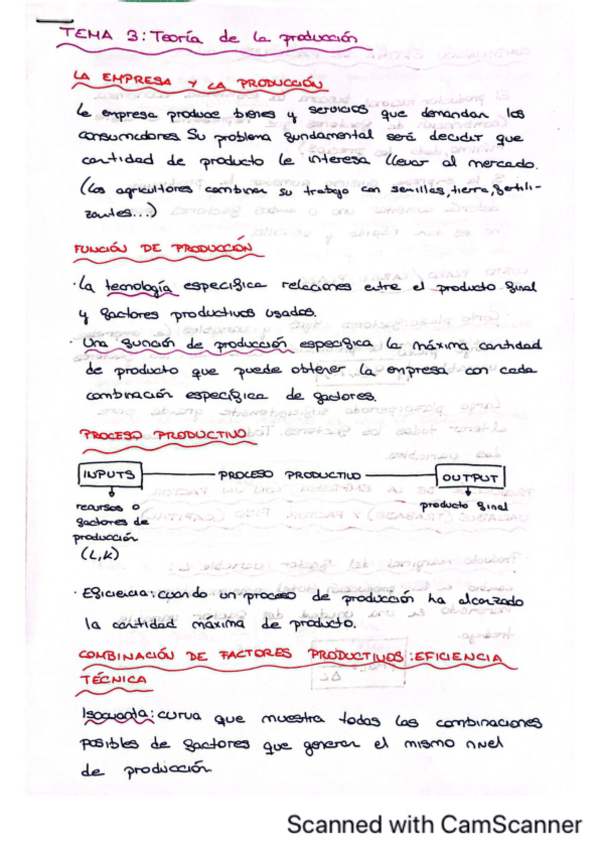 TEMA 3: Teoría de la producción
LA EMPRESA Y LA PRODUCCIÓN
La empresa produce bienes y servicios que demandan los
consumidores. Su problema fundamental será decidir que
cantidad de producto le interesa llevar al mercado.
(Los agricultores combinan su trabajo con semillas, tierra, fertili-
zantes...)
FUNCIÓN DE PRODUCCIÓN
· La tecnología especifica relaciones entre el producto final
y factores productivos usados.
· Una función de producción especifica la máxima cantidad
de producto que puede obtener la empresa con cada
combinación específica de factores.
PROCESO PRODUCTIVO
INPUTS PROCESO PRODUCTIVO OUTPUT
recursos o producto final
factores de
producción
(L,K)
· Eficiencia: cuando un proceso de producción ha alcanzado
la cantidad máxima de producto.
COMBINACIÓN DE FACTORES PRODUCTIVOS: EFICIENCIA
TÉCNICA
Isocuanta: curva que muestra todas las combinaciones
posibles de factores que generan el mismo nivel
de producción.
Scanned with CamScanner